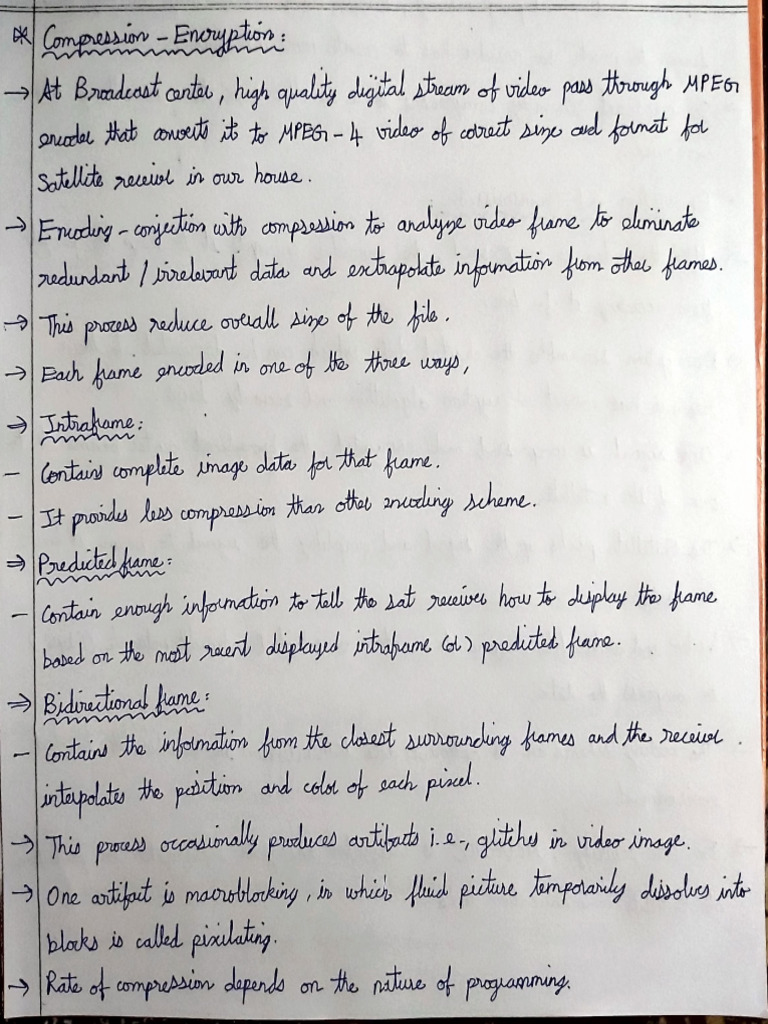 ※ Compression - Encryption :
→ At Broadcast center, high quality digital stream of video pass through MPEG
encoder that converts it to MPEG - 4 video of correct size and format for
Satellite receiver in our house.
→ Encoding - conjection with compression to analyze video frame to eliminate
redundant / irrelevant data and extrapolate information from other frames.
→ This process reduce overall size of the file.
→ Each frame encoded in one of the three ways,
⇒ Intraframe :
- Contains complete image data for that frame.
- It provides less compression than other encoding scheme.
⇒ Predicted frame :
- Contain enough information to tell the sat receiver how to display the frame
based on the most recent displayed intraframe (or) predicted frame.
⇒ Bidirectional frame :
- Contains the information from the closest surrounding frames and the receiver.
interpolates the position and color of each pixel.
→ This process occasionally produces artifacts i.e., glitches in video image.
→ One artifact is macroblocking, in which fluid picture temporarily dissolves into
blocks is called pixilating.
→ Rate of compression depends on the nature of programming.